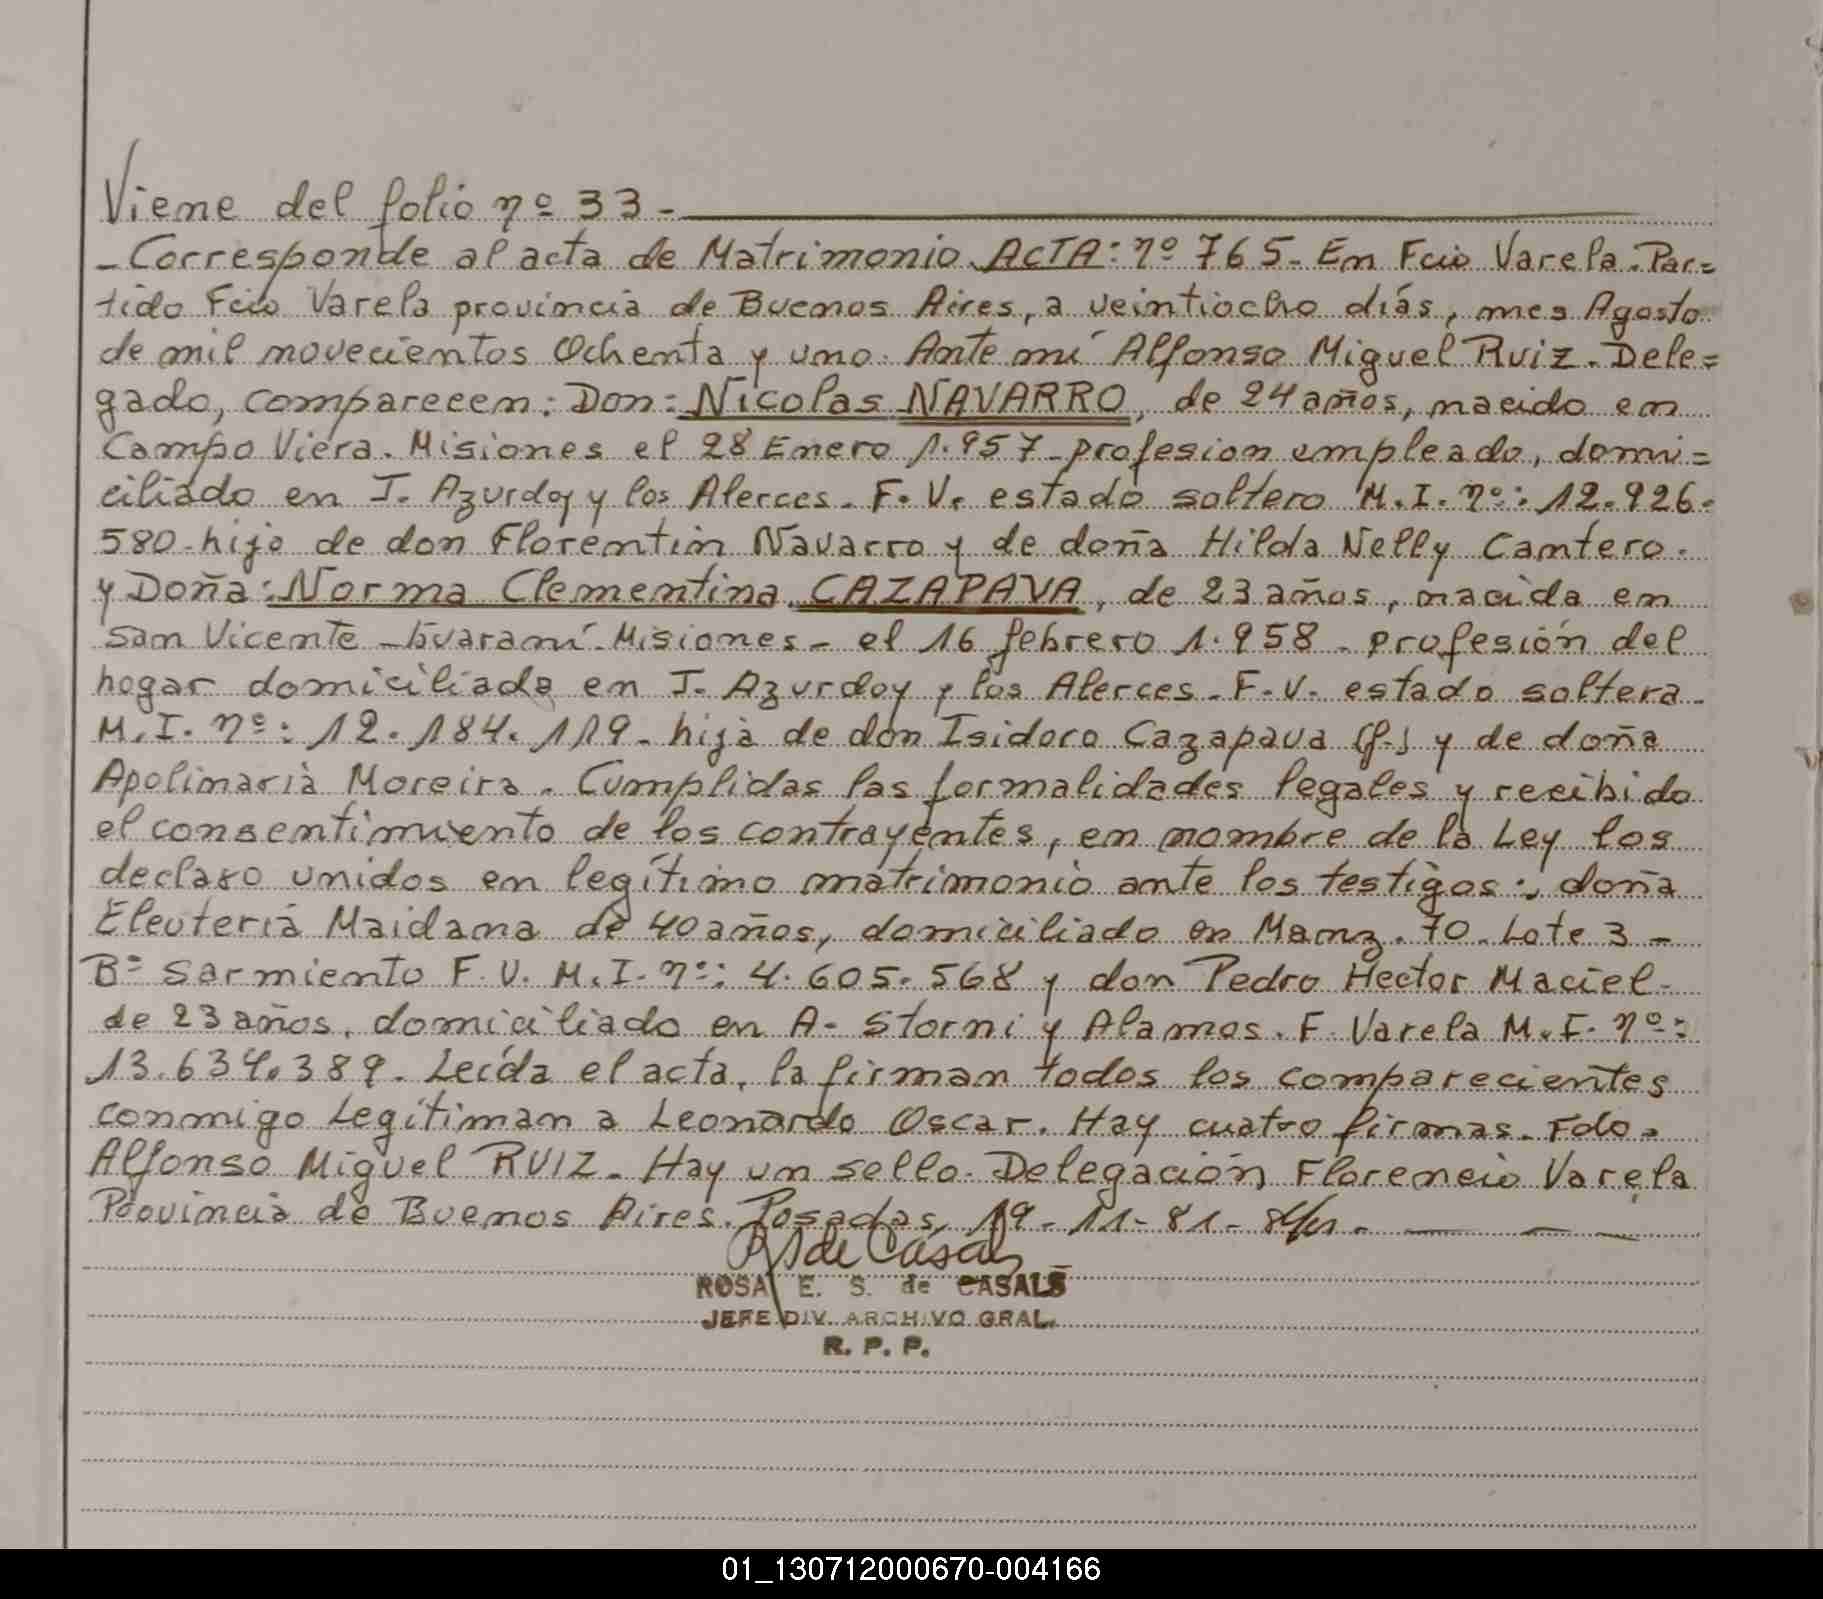 Viene del folio nº 33 -
- Corresponde al acta de Matrimonio. ACTA: nº 765 - En Fcio Varela. Par=
tido Fcio Varela provincia de Buenos Aires, a veintiocho días, mes Agosto
de mil novecientos Ochenta y uno. Ante mí Alfonso Miguel Ruiz. Dele=
gado, comparecen: Don: Nicolas NAVARRO, de 24 años, nacido en
Campo Viera. Misiones el 28 Enero 1.957 - profesion empleado, domi=
ciliado en J. Azurdoy y los Alerces. F. V. estado soltero M. I. nº: 12.926.
580 - hijo de don Florentin Navarro y de doña Hilda Nelly Cantero.
y Doña: Norma Clementina CAZAPAVA, de 23 años, nacida en
San Vicente - Guaraní - Misiones - el 16 febrero 1.958 - profesión del
hogar domiciliada en J. Azurdoy y los Alerces. F. V. estado soltera.
M. I. nº: 12.184.119 - hija de don Isidoro Cazapava (f.) y de doña
Apolinaria Moreira. Cumplidas las formalidades legales y recibido
el consentimiento de los contrayentes, en nombre de la Ley los
declaro unidos en legítimo matrimonio ante los testigos: doña
Eleuteria Maidana de 40 años, domiciliado en Manz. 70. Lote 3 -
Bº Sarmiento F. V. M. I. nº: 4.605.568 y don Pedro Hector Maciel
de 23 años, domiciliado en A. Storni y Alamos. F. Varela M. I. nº:
13.634.389. Leída el acta, la firman todos los comparecientes
conmigo Legítiman a Leonardo Oscar. Hay cuatro firmas. Fdo.
Alfonso Miguel RUIZ. Hay un sello. Delegación Florencio Varela
Provincia de Buenos Aires. Posadas, 19 - 11 - 81 -
de Casals
ROSA E. S. de CASALS
JEFE DIV. ARCHIVO GRAL.
R. P. P.
01_130712000670-004166